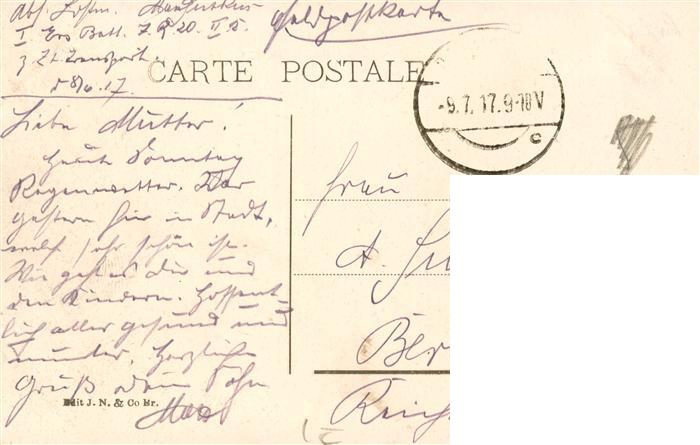 Feldpostkarte
I Ers Batl. F. R 20. II
CARTE POSTALE
-9.7.17.9-10V
c
Liebe Mutter!
Heute Sonntag
Regenwetter. War
gestern hier in Stadt,
welche sehr schön ist.
Wie geht es dir und
den Kindern. Hoffent-
lich alles gesund und
munter. Herzlichen
Gruß dein Sohn
Max
Frau
A.
Ber
Edit J. N. & Co Br.